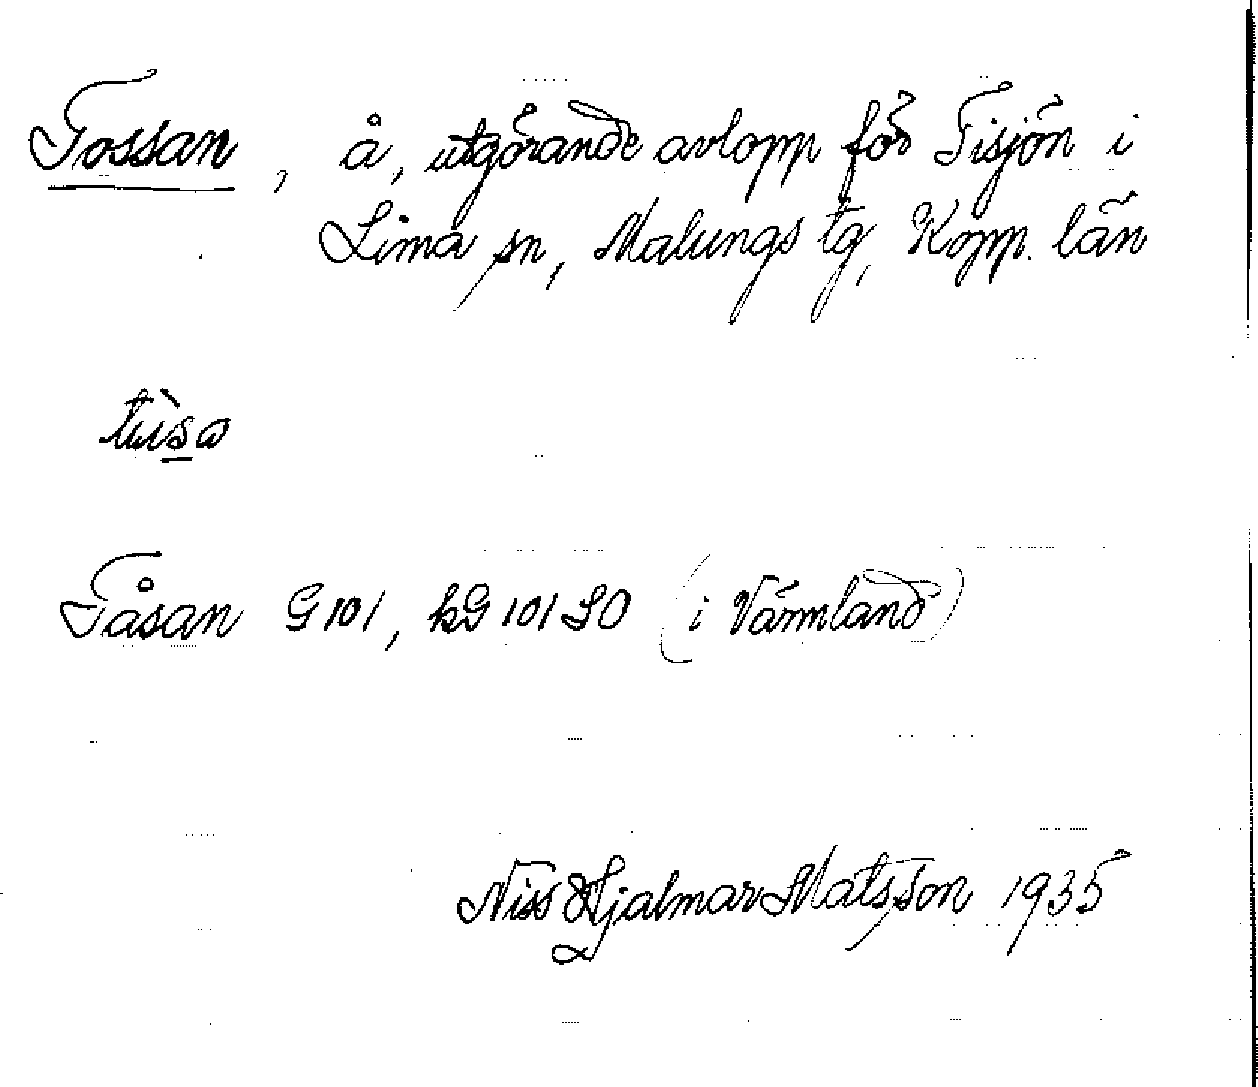 Tossan, å, utgörande avlopp för Tisjön i
Lima sn, Malungs tg, Kopp. län
tùsa
Tåsan G101, kG101SO (i Värmland)
Niss Hjalmar Matsson 1935